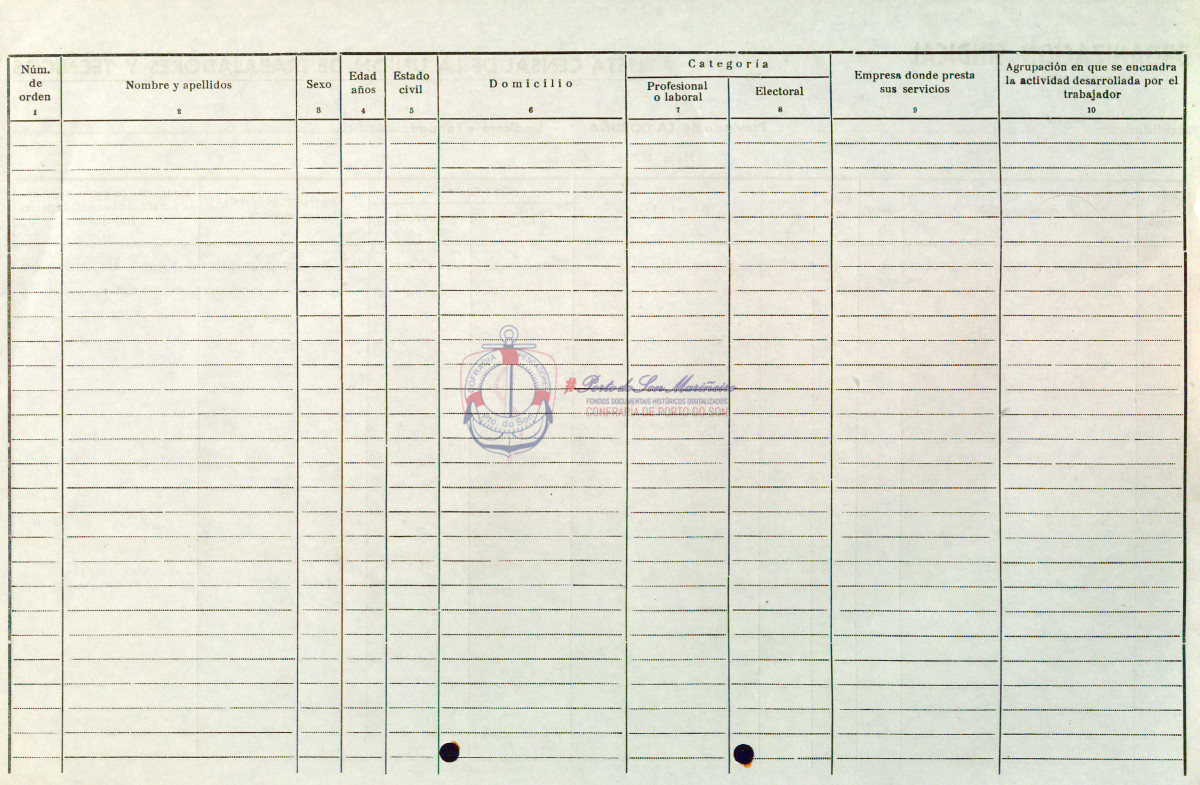 Núm.
de
orden
1
Nombre y apellidos
2
Sexo
3
Edad
años
4
Estado
civil
5
Domicilio
6
Categoría
Profesional
o laboral
7
Electoral
8
Empresa donde presta
sus servicios
9
Agrupación en que se encuadra
la actividad desarrollada por el
trabajador
10
COFRADIA PESCADORES
Pto. do Son
Porto do Son Mariñeiro
FONDOS DOCUMENTAIS HISTÓRICOS DIXITALIZADOS
CONFRARÍA DE PORTO DO SON